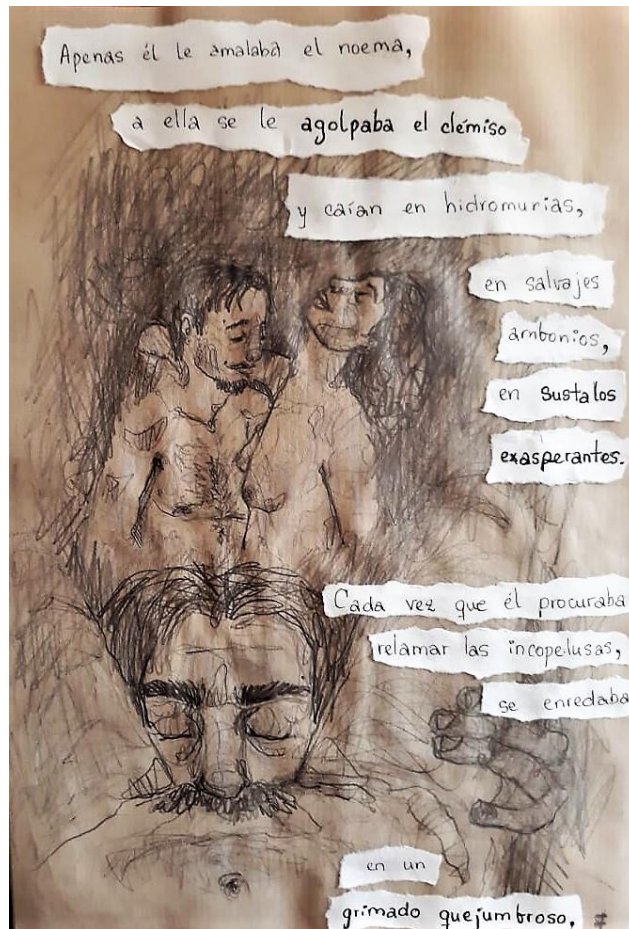 Apenas él le amalaba el noema,
a ella se le agolpaba el clémiso
y caían en hidromurias,
en salvajes
ambonios,
en sustalos
exasperantes.
Cada vez que él procuraba
relamar las incopelusas,
se enredaba
en un
grimado quejumbroso,